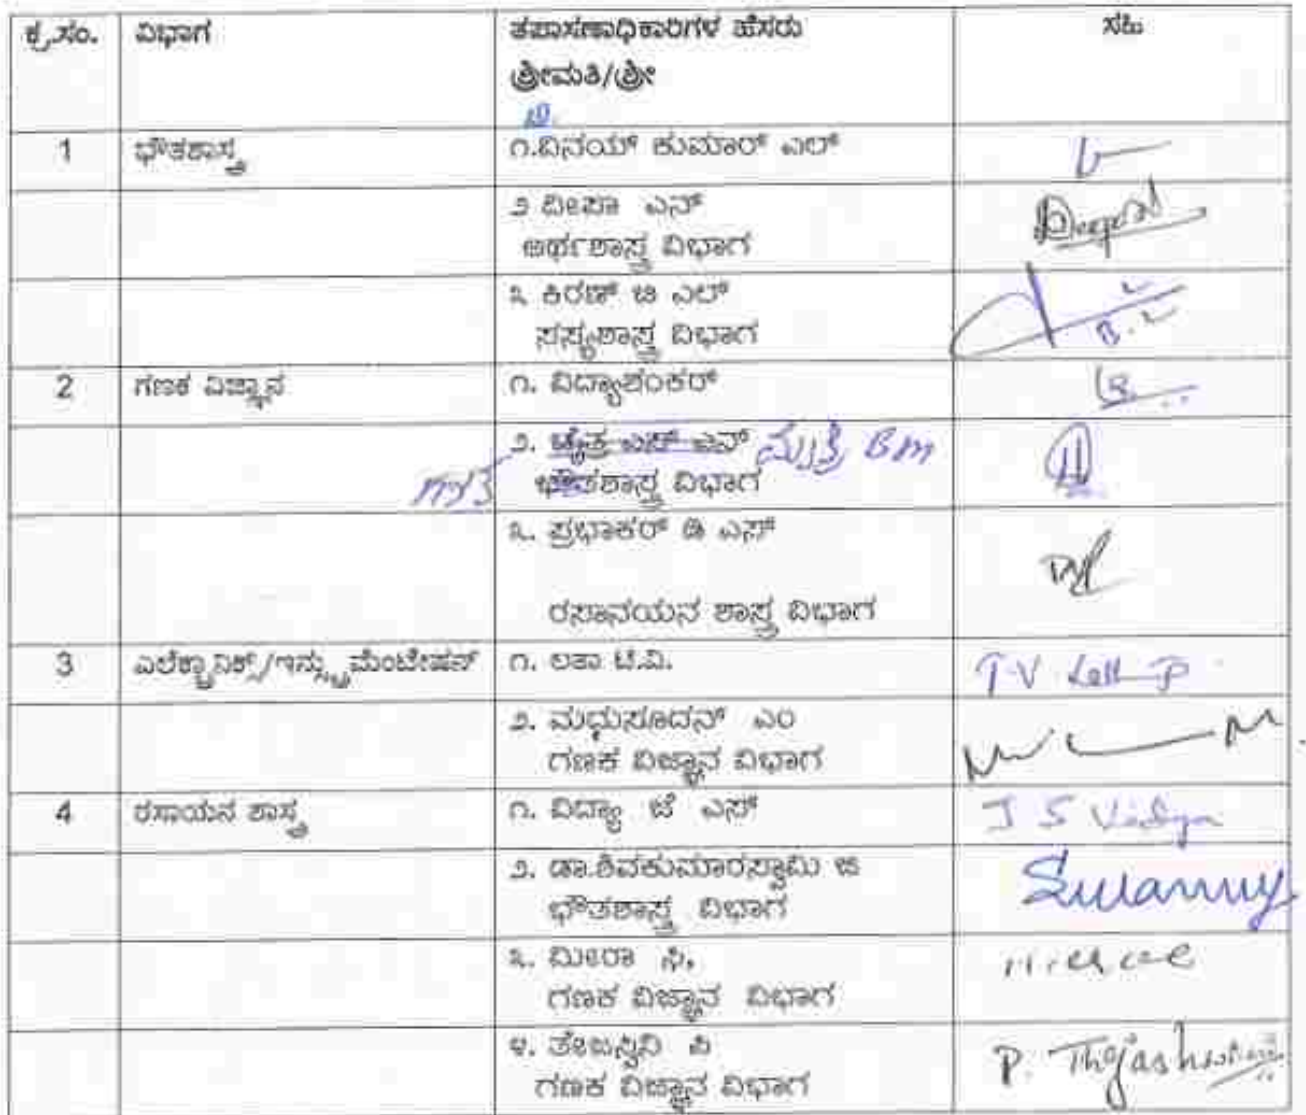 ಕ್ರ.ಸಂ. ವಿಭಾಗ ತಪಾಸಣಾಧಿಕಾರಿಗಳ ಹೆಸರು ಸಹಿ
ಶ್ರೀಮತಿ/ಶ್ರೀ
1 ಭೌತಶಾಸ್ತ್ರ ೧.ವಿನಯ್ ಕುಮಾರ್ ಎಲ್
೨ ದೀಪಾ ಎನ್
ಅರ್ಥಶಾಸ್ತ್ರ ವಿಭಾಗ
೩ ಕಿರಣ್ ಬಿ ಎಲ್
ಸಸ್ಯಶಾಸ್ತ್ರ ವಿಭಾಗ
2 ಗಣಕ ವಿಜ್ಞಾನ ೧. ವಿದ್ಯಾಶಂಕರ್
೨. ಚೈತ್ರ ಎಸ್ ಎನ್ BM
ಭೌತಶಾಸ್ತ್ರ ವಿಭಾಗ
೩. ಪ್ರಭಾಕರ್ ಡಿ ಎಸ್
ರಸಾನಯನ ಶಾಸ್ತ್ರ ವಿಭಾಗ
3 ಎಲೆಕ್ಟ್ರಾನಿಕ್ಸ್/ಇನ್ಸ್ಟ್ರುಮೆಂಟೇಷನ್ ೧. ಲತಾ ಟಿ.ವಿ.
೨. ಮಧುಸೂದನ್ ಎಂ
ಗಣಕ ವಿಜ್ಞಾನ ವಿಭಾಗ
4 ರಸಾಯನ ಶಾಸ್ತ್ರ ೧. ವಿದ್ಯಾ ಜೆ ಎಸ್ J S Vidya
೨. ಡಾ.ಶಿವಕುಮಾರಸ್ವಾಮಿ ಜಿ
ಭೌತಶಾಸ್ತ್ರ ವಿಭಾಗ
೩. ಮೀರಾ ಸಿ,
ಗಣಕ ವಿಜ್ಞಾನ ವಿಭಾಗ
೪. ತೇಜಸ್ವಿನಿ ಪಿ
ಗಣಕ ವಿಜ್ಞಾನ ವಿಭಾಗ